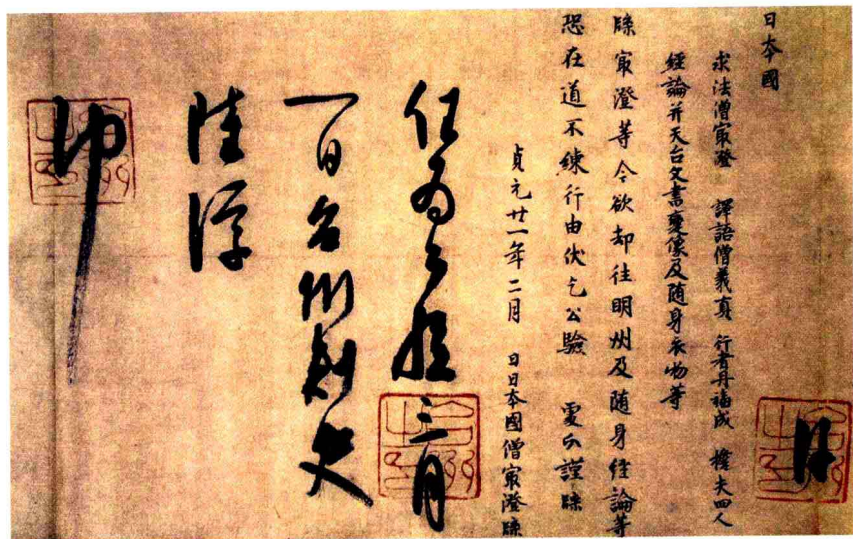 日本國
求法僧最澄 譯語僧義真 行者丹福成 擔夫四人
經論并天台文書變像及随身衣物等
牒最澄等今欲却往明州及随身經論等
恐在道不練行由伏乞公驗 處分謹牒
貞元廿一年二月 日日本國僧最澄牒
任為公驗三月
一日台州刺史
陸淳
印
台州之印